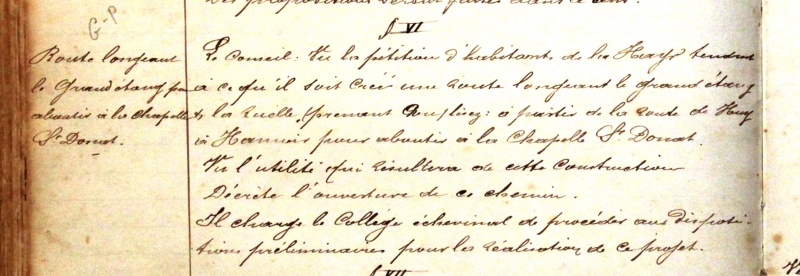 des propositions seront faites dans ce sens.
§ VI
G-P
Route longeant
le Grand étang pour
aboutir à la chapelle
St Donat.
Le Conseil: Vu la pétition d'habitants de la Haye tendant
à ce qu'il soit créé une route longeant le grand étang
la ruelle, (prenant à partir de la route de Huy
à Hannut pour aboutir à la Chapelle St Donat.
Vu l'utilité qui résultera de cette construction
Décrète l'ouverture de ce chemin.
Il charge le Collège échevinal de procéder aux disposi-
tions préliminaires pour la réalisation de ce projet.
§ VII